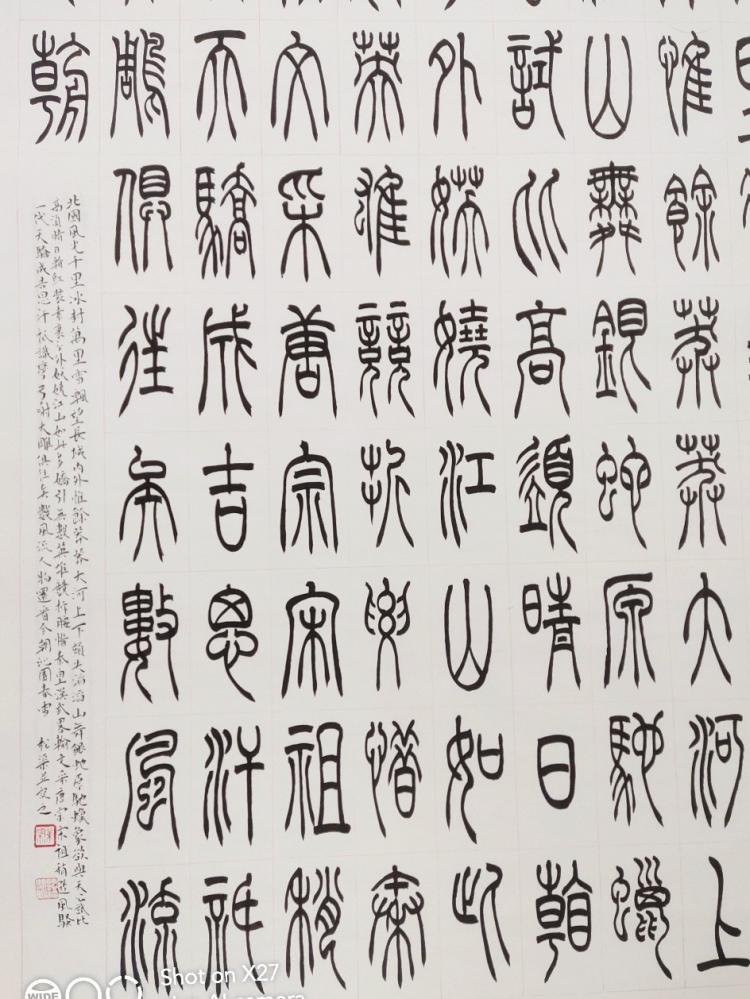 惟餘莽莽大河上
山舞銀蛇原馳蠟
試比高須晴日看
外妖嬈江山如此
英雄競折腰惜秦
文采唐宗宋祖稍
天驕成吉思汗
鵰俱往矣數風流
朝
北國風光千里冰封萬里雪飄望長城內外惟餘莽莽大河上下頓失滔滔山舞銀蛇原馳蠟象欲與天公試比
高須晴日看紅裝素裹分外妖嬈江山如此多嬌引無數英雄競折腰惜秦皇漢武略輸文采唐宗宋祖稍遜風騷
一代天驕成吉思汗祇識彎弓射大雕俱往矣數風流人物還看今朝沁園春雪
Shot on X27